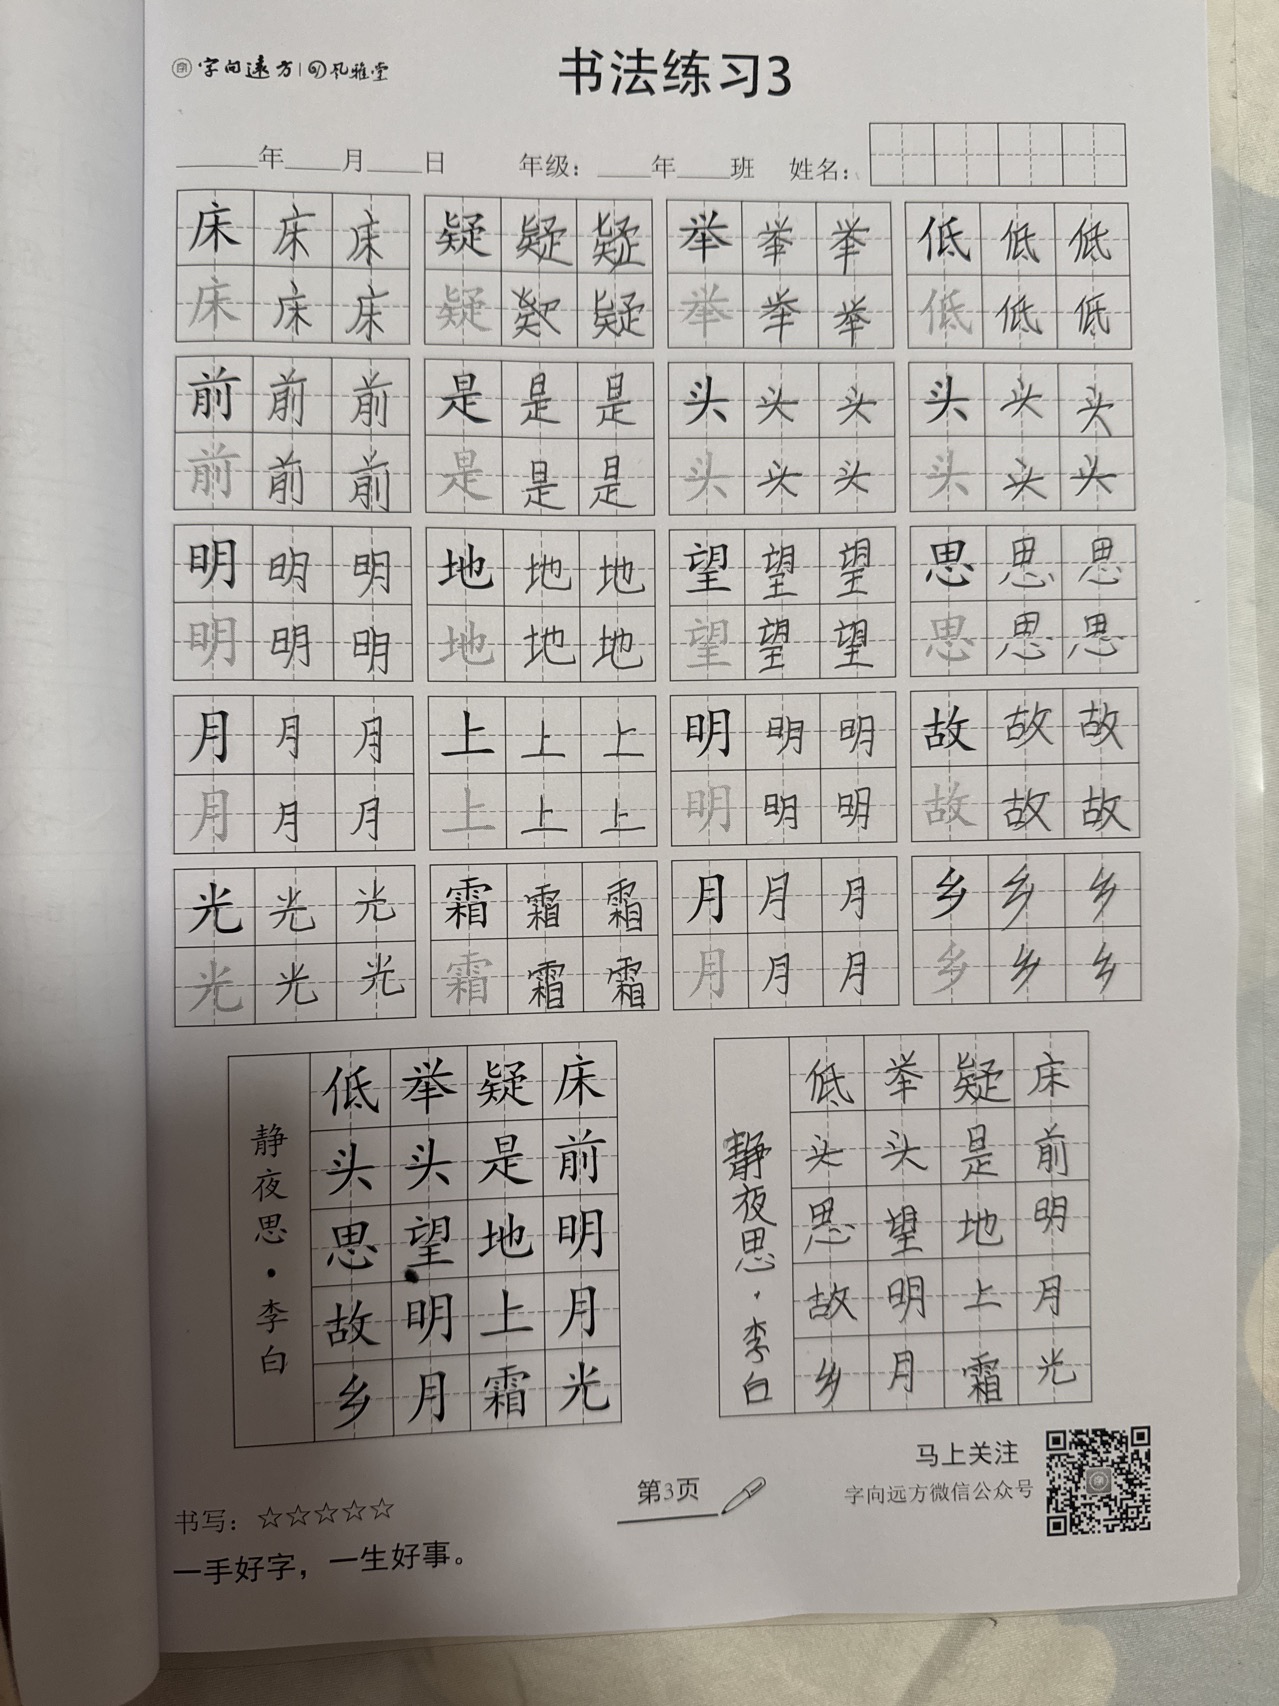 字向远方 风雅堂
书法练习3
年 月 日 年级： 年 班 姓名：
床 床 床 疑 疑 疑 举 举 举 低 低 低
床 床 床 疑 疑 举 举 举 低 低 低
前 前 前 是 是 是 头 头 头 头 头 头
前 前 前 是 是 是 头 头 头 头 头 头
明 明 明 地 地 地 望 望 望 思 思 思
明 明 明 地 地 地 望 望 望 思 思 思
月 月 月 上 上 上 明 明 明 故 故 故
月 月 月 上 上 上 明 明 明 故 故 故
光 光 光 霜 霜 霜 月 月 月 乡 乡 乡
光 光 光 霜 霜 霜 月 月 月 乡 乡 乡
床前明月光
疑是地上霜
举头望明月
低头思故乡
静夜思·李白
床前明月光
疑是地上霜
举头望明月
低头思故乡
静夜思·李白
马上关注
字向远方微信公众号
第3页
书写：☆☆☆☆☆
一手好字，一生好事。